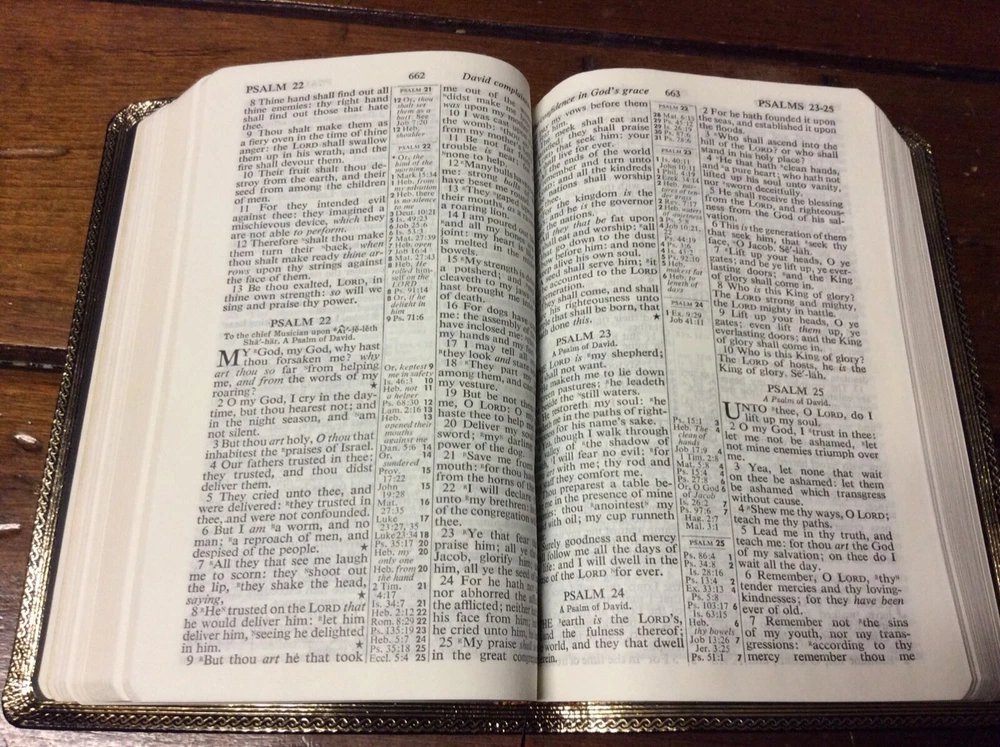 PSALM 22
662
David complains
8 Thine hand shall find out all
thine enemies: thy right hand
shall find out those that hate
thee.
9 Thou shalt make them as
a fiery oven in the time of thine
anger: the LORD shall swallow
them up in his wrath, and the
fire shall devour them.
10 Their fruit shalt thou de-
stroy from the earth, and their
seed from among the children
of men.
11 For they intended evil
against thee: they imagined a
mischievous device, which they
are not able to perform.
12 Therefore shalt thou make
them turn their back, when
thou shalt make ready thine ar-
rows upon thy strings against
the face of them.
13 Be thou exalted, LORD, in
thine own strength: so will we
sing and praise thy power.
PSALM 22
To the chief Musician upon
Shä'-här, A Psalm of David.
MY God, my God, why hast
thou forsaken me? why
art thou so far from helping
me, and from the words of my
roaring?
2 O my God, I cry in the day-
time, but thou hearest not; and
in the night season, and am
not silent.
3 But thou art holy, O thou that
inhabitest the praises of Israel.
4 Our fathers trusted in thee:
they trusted, and thou didst
deliver them.
5 They cried unto thee, and
were delivered: they trusted in
thee, and were not confounded.
6 But I am a worm, and no
man; a reproach of men, and
despised of the people.
7 All they that see me laugh
me to scorn: they shoot out
the lip, they shake the head,
saying,
8 He trusted on the LORD that
he would deliver him: let him
deliver him, seeing he delighted
in him.
9 But thou art he that took
PSALM 21
12 Or, thou
shalt set
them as a
butt: See
Job 7:20
12 Heb.
shoulder
PSALM 22
Or, the
hind of the
morning
1 Mark 15:34
1 Heb. from
my salvation
2 Heb. there
is no silence
to me
3 Deut. 10:21
5 Is. 49:23
6 Job 25:6
6 Is. 53:3
7 Mat. 27:39
7 Heb. open
7 Job 16:4
8 Mat. 27:43
8 Heb. He
rolled him-
self on the
LORD
8 Ps. 91:14
8 Or, if he
delight in
him
9 Ps. 71:6
Or, keptest 9
me in safety
Is. 46:3 10
Heb. not 11
a helper
Ps. 68:30 12
Lam. 2:16 13
Heb. 13
opened their
mouths
against me
Dan. 5:6 14
Or, 14
sundered
Prov. 15
17:22
John 15
19:28
Mat. 16
27:35
Luke 17
23:27, 35
Luke 23:34 18
Ps. 35:17 20
Heb. my 20
only one
Heb. from 20
the hand
2 Tim. 21
4:17
Is. 34:7 21
Heb. 2:12 22
Rom. 8:29 22
Ps. 135:19 23
Heb. 5:7 24
Ps. 35:18 25
Eccl. 5:4 25
me out of the
didst make me
was upon my mother's
10 I was cast
the womb: thou
from my mother's
11 Be not
trouble is near
none to help.
12 Many bulls
me: strong bulls
have beset me
13 They gaped
their mouths, as a
a roaring lion.
14 I am poured
and all my bones
joint: my heart
is melted in the
bowels.
15 My strength is
a potsherd; and
cleaveth to my jaws
hast brought me
of death.
16 For dogs have
me: the assembly of
have inclosed me:
my hands and my
17 I may tell all
they look and stare
18 They part my
among them, and cast
my vesture.
19 But be not thou
me, O LORD: O my
haste thee to help me
20 Deliver my soul
sword; my darling
power of the dog.
21 Save me from
mouth: for thou hast
from the horns of
22 I will declare
unto my brethren: in
of the congregation
thee.
23 Ye that fear
praise him; all ye
Jacob, glorify him;
him, all ye the seed
24 For he hath not
nor abhorred the
the afflicted; neither
his face from him;
he cried unto him,
25 My praise shall
in the great congre
Confidence in God's grace
663
PSALMS 23-25
my vows before them
meek shall eat and
they shall praise
that seek him: your
live for ever.
ends of the world
and turn unto
and all the kindreds
nations shall worship
the kingdom is the
and he is the governor
nations.
they that be fat upon
shall eat and worship: all
that go down to the dust
bow before him: and none
alive his own soul.
shall serve him; it
accounted to the LORD
generation.
They shall come, and shall
his righteousness unto
that shall be born, that
done this.
PSALM 23
A Psalm of David.
LORD is my shepherd;
shall not want.
maketh me to lie down
pastures: he leadeth
the still waters.
restoreth my soul: he
me in the paths of right-
for his name's sake.
though I walk through
valley of the shadow of
I will fear no evil: for
art with me; thy rod and
they comfort me.
Thou preparest a table be-
me in the presence of mine
thou anointest my
with oil; my cup runneth
Surely goodness and mercy
follow me all the days of
life: and I will dwell in the
of the LORD for ever.
PSALM 24
A Psalm of David.
THE earth is the LORD'S,
and the fulness thereof;
world, and they that dwell
therein.
PSALM 22
26 Mat. 6:13
PSALM 23
1 Is. 40:11
1 Phil. 4:19
2 Ezek. 34:14
2 Heb. pas-
tures of ten-
der grass
2 Rev. 7:17
2 Heb. waters
of quietness
3 Ps. 5:8
4 Job 10:21,
22
Ps. 44:19
4 Ps. 3:6
4 Is. 43:2
5 Ps. 92:10
5 Heb.
makest fat
6 Heb. to
length of
days
PSALM 24
1 Ex. 9:29
Job 41:11
Ps. 15:1 3
Heb. The 4
clean of
hands
Job 17:9 4
1 Tim. 2:8
Mat. 5:8 4
Ps. 15:4 4
Ps. 27:8 6
Or, O God 6
of Jacob
Is. 26:2 7
Ps. 97:6 7
Hag. 2:7
Mal. 3:1
PSALM 25
Ps. 86:4 1
Ps. 34:8 2
Is. 28:16
Ps. 13:4 2
Ex. 33:13 4
Ps. 5:8
Ps. 103:17 6
Is. 63:15
Heb. 6
thy bowels
Job 13:26 7
Jer. 3:25
Ps. 51:1 7
2 For he hath founded it upon
the seas, and established it upon
the floods.
3 Who shall ascend into the
hill of the LORD? or who shall
stand in his holy place?
4 He that hath clean hands,
and a pure heart; who hath not
lifted up his soul unto vanity,
nor sworn deceitfully.
5 He shall receive the blessing
from the LORD, and righteous-
ness from the God of his sal-
vation.
6 This is the generation of them
that seek him, that seek thy
face, O Jacob. Sē'-läh.
7 Lift up your heads, O ye
gates; and be ye lift up, ye ever-
lasting doors; and the King
of glory shall come in.
8 Who is this King of glory?
The LORD strong and mighty,
the LORD mighty in battle.
9 Lift up your heads, O ye
gates; even lift them up, ye
everlasting doors; and the King
of glory shall come in.
10 Who is this King of glory?
The LORD of hosts, he is the
King of glory. Sē'-läh.
PSALM 25
A Psalm of David.
UNTO thee, O LORD, do I
lift up my soul.
2 O my God, I trust in thee:
let me not be ashamed, let
not mine enemies triumph over
me.
3 Yea, let none that wait
on thee be ashamed: let them
be ashamed which transgress
without cause.
4 Shew me thy ways, O LORD;
teach me thy paths.
5 Lead me in thy truth, and
teach me: for thou art the God
of my salvation; on thee do I
wait all the day.
6 Remember, O LORD, thy
tender mercies and thy loving-
kindnesses; for they have been
ever of old.
7 Remember not the sins
of my youth, nor my trans-
gressions: according to thy
mercy remember thou me